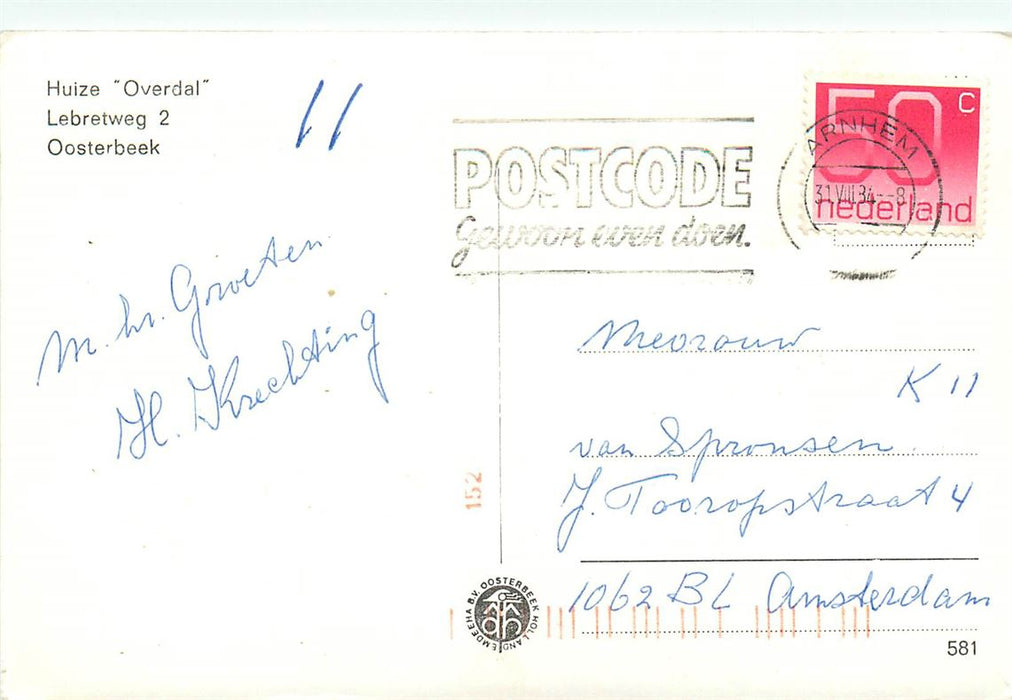 Huize "Overdal"
Lebretweg 2
Oosterbeek
11
M. hr. Groeten
H. Krechting
POSTCODE
Gewoon even doen.
50 C
nederland
ARNHEM
31.VIII.84.--8
Mevrouw
K 11
van Spronsen
J. Tooropstraat 4
1062 BL Amsterdam
152
EMDEEHA B.V. OOSTERBEEK HOLLAND
581